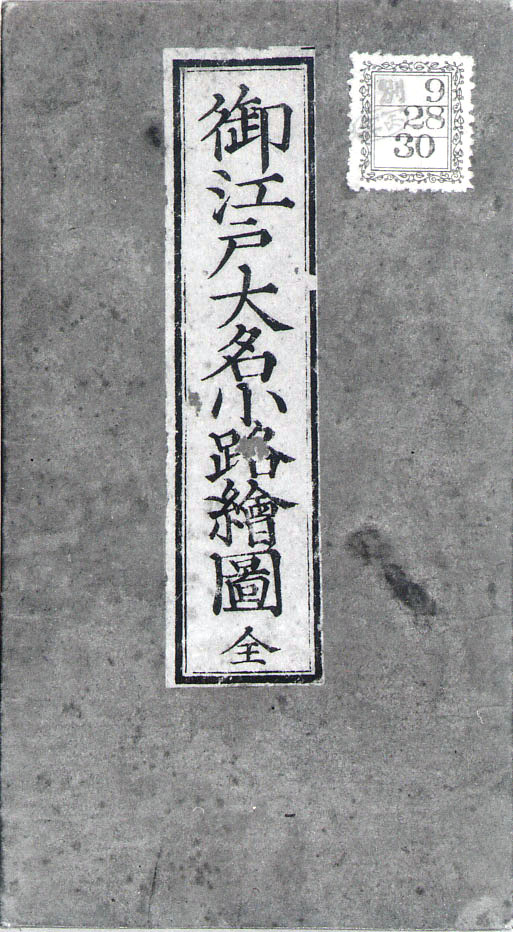 御江戸大名小路繪圖
全
別 9
28
30